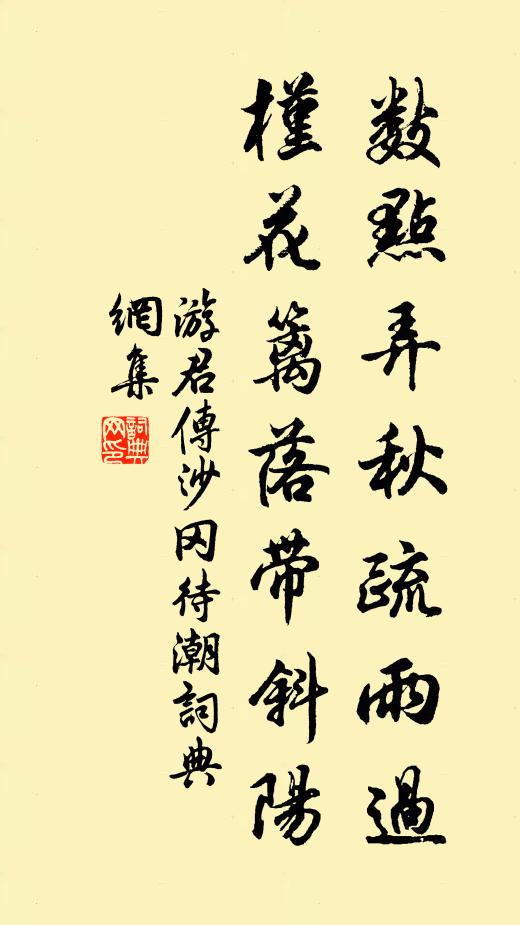 數點弄秋疏雨過
槿花籬落帶斜陽
游君傅沙冈待潮詞典
網集
詞典
网印